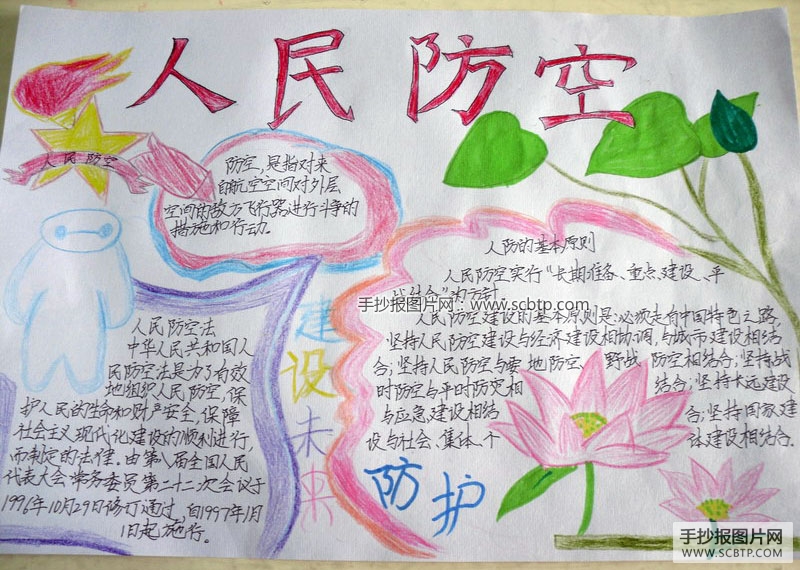 人民防空
人民防空
防空,是指对来
自航空空间对外层
空间的敌方飞行器进行斗争的
措施和行动。
人防的基本原则
人民防空实行“长期准备、重点建设、平
战结合”为方针
手抄报图片网:www.scbtp.com
人民防空建设的基本原则是:必须走有中国特色之路,
坚持人民防空建设与经济建设相协调,与城市建设相结
合;坚持人民防空与要地防空、野战 防空相结合;坚持战
时防空与平时防灾相 结合;坚持长远建设
与应急建设相结 合;坚持国家建
设与社会、集体、个 建设相结合.
人民防空法
中华人民共和国人
民防空法是为了有效
地组织人民防空,保
护人民的生命和财产安全,保障
社会主义现代化建设的顺利进行,
而制定的法律。由第八届全国人民
代表大会常务委员第二十二次会议于
1996年10月29日修订通过,自1997年1月
1日起施行。
建设未来
防护
手抄报图片网
WWW.SCBTP.COM